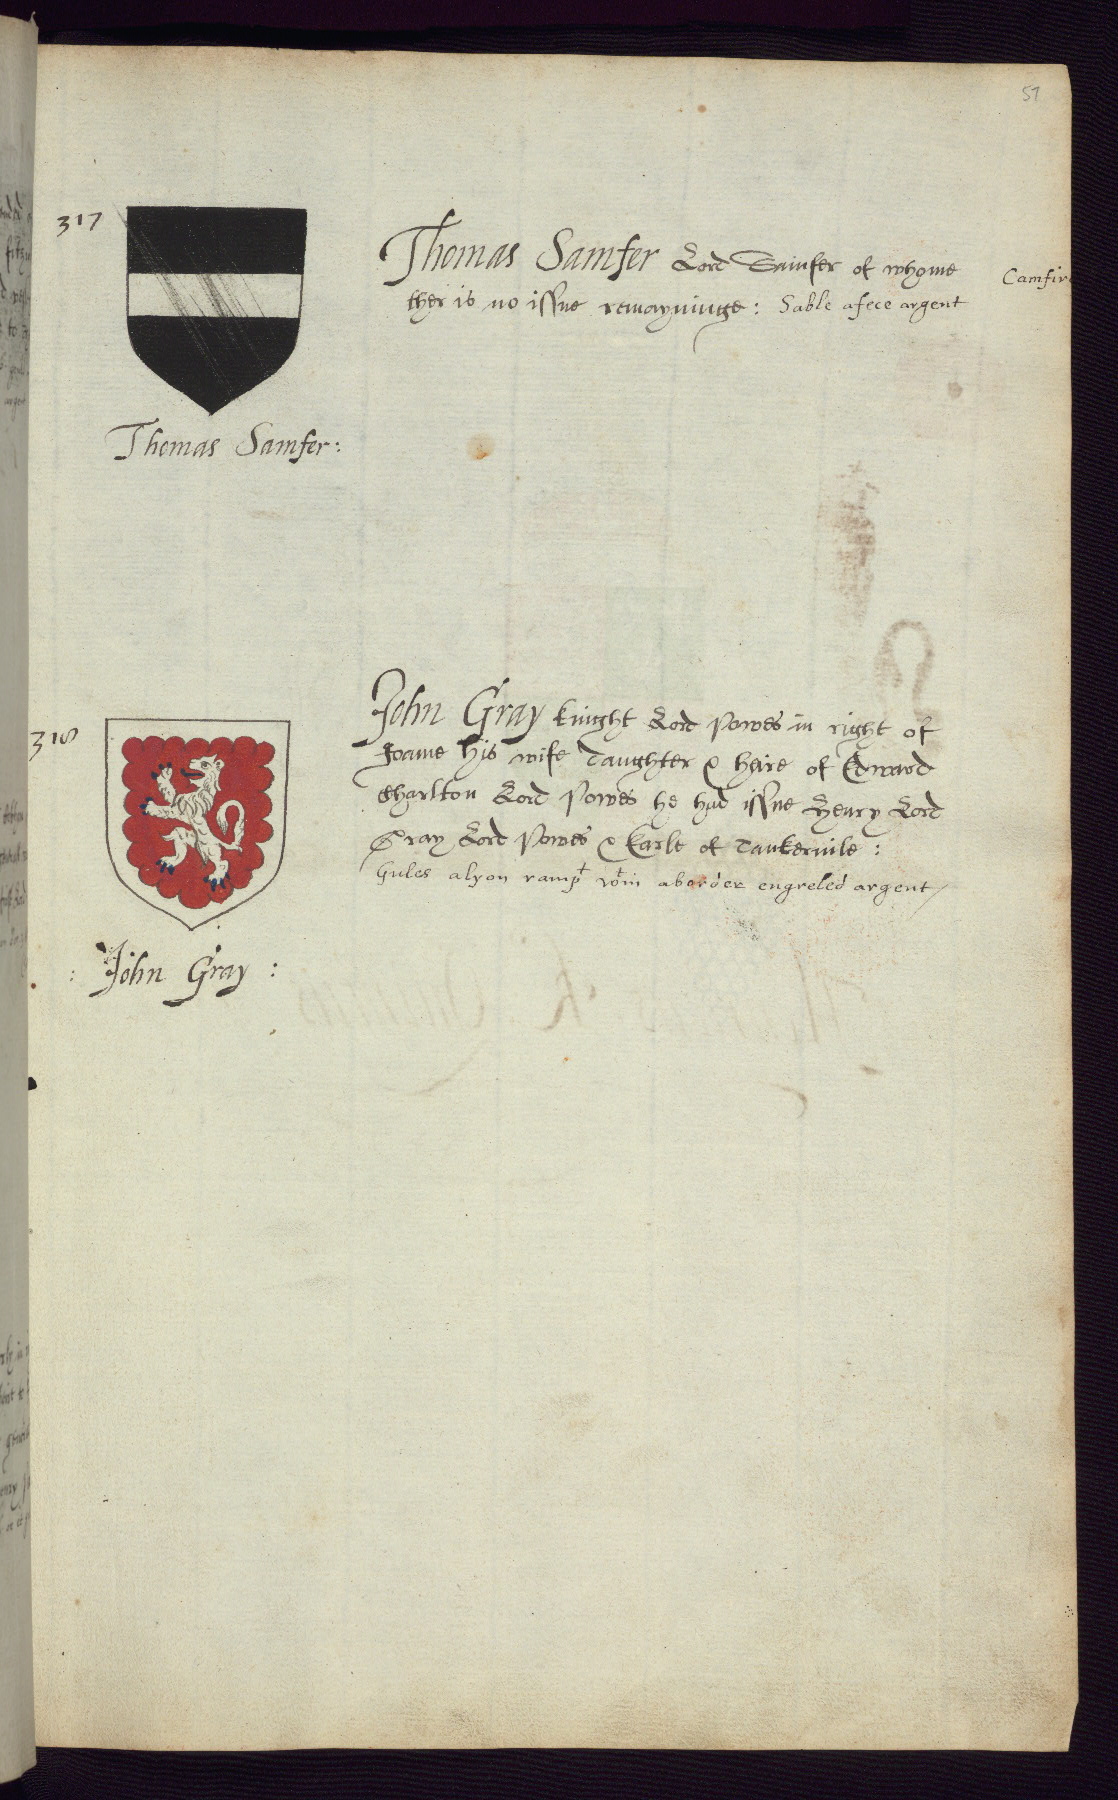 57
317
Thomas Samfer Lord Samfer of whome
ther is no issue remayninge : Sable a fece argent
Camfir
Thomas Samfer :
318
John Gray knight Lord Powes in right of
Joane his wife daughter & heire of Edward
Charlton Lord Powes he had issue Henry Lord
Gray Lord Powes & Earle of Tankervile :
Gules a lyon ramp^t w^tin a border engreled argent /
: John Gray :